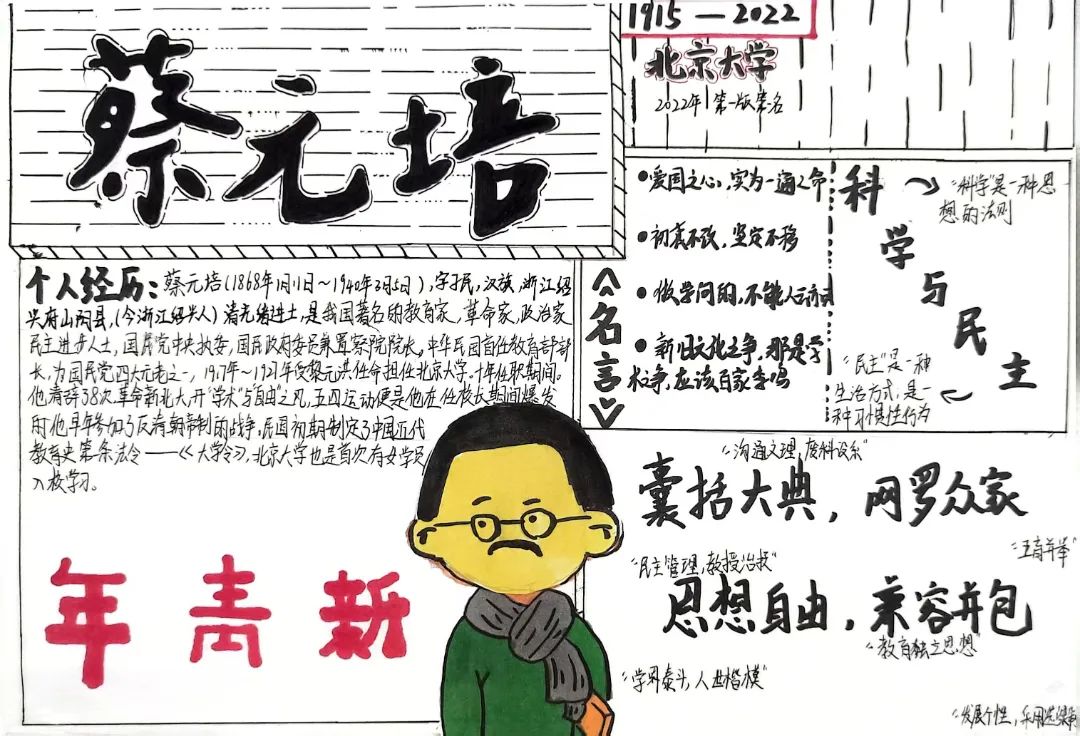 蔡元培
1915—2022
北京大学
2022年第一版第名
个人经历：蔡元培(1868年1月11日～1940年3月5日)，字孑民，汉族，浙江绍
兴府山阴县，(今浙江绍兴人)清光绪进士，是我国著名的教育家，革命家，政治家
民主进步人士，国民党中央执委，国民政府委员兼监察院院长。中华民国首任教育部部
长，为国民党四大元老之一，1917年～1927年受黎元洪任命担任北京大学。十年任职期间。
他，有辞38次，革命新北大，开"学术"与"自由"之风，五四运动便是他在任校长期间爆发
时他早年参加了反清朝帝制的战争，民国初期制定了中国近代
教育史第条法令——《大学令》，北京大学也是首次有女学员
入校学习。
《名言》
•爱国之心，实为一遍之命
•初衷不改，坚定不移
•做学问的，不能人云亦云
•新旧文化之争，那是学
术之争，应该百家争鸣
科学与民主
"科学"是一种思
想的法则
"民主"是一种
生活方式，是一
种习惯性行为
年青新
"沟通文理，废科设系"
囊括大典，网罗众家
"五育并举"
"民主管理，教授治校"
思想自由，兼容并包
"教育独立思想"
"学界泰斗，人世楷模"
"发展个性，采用选